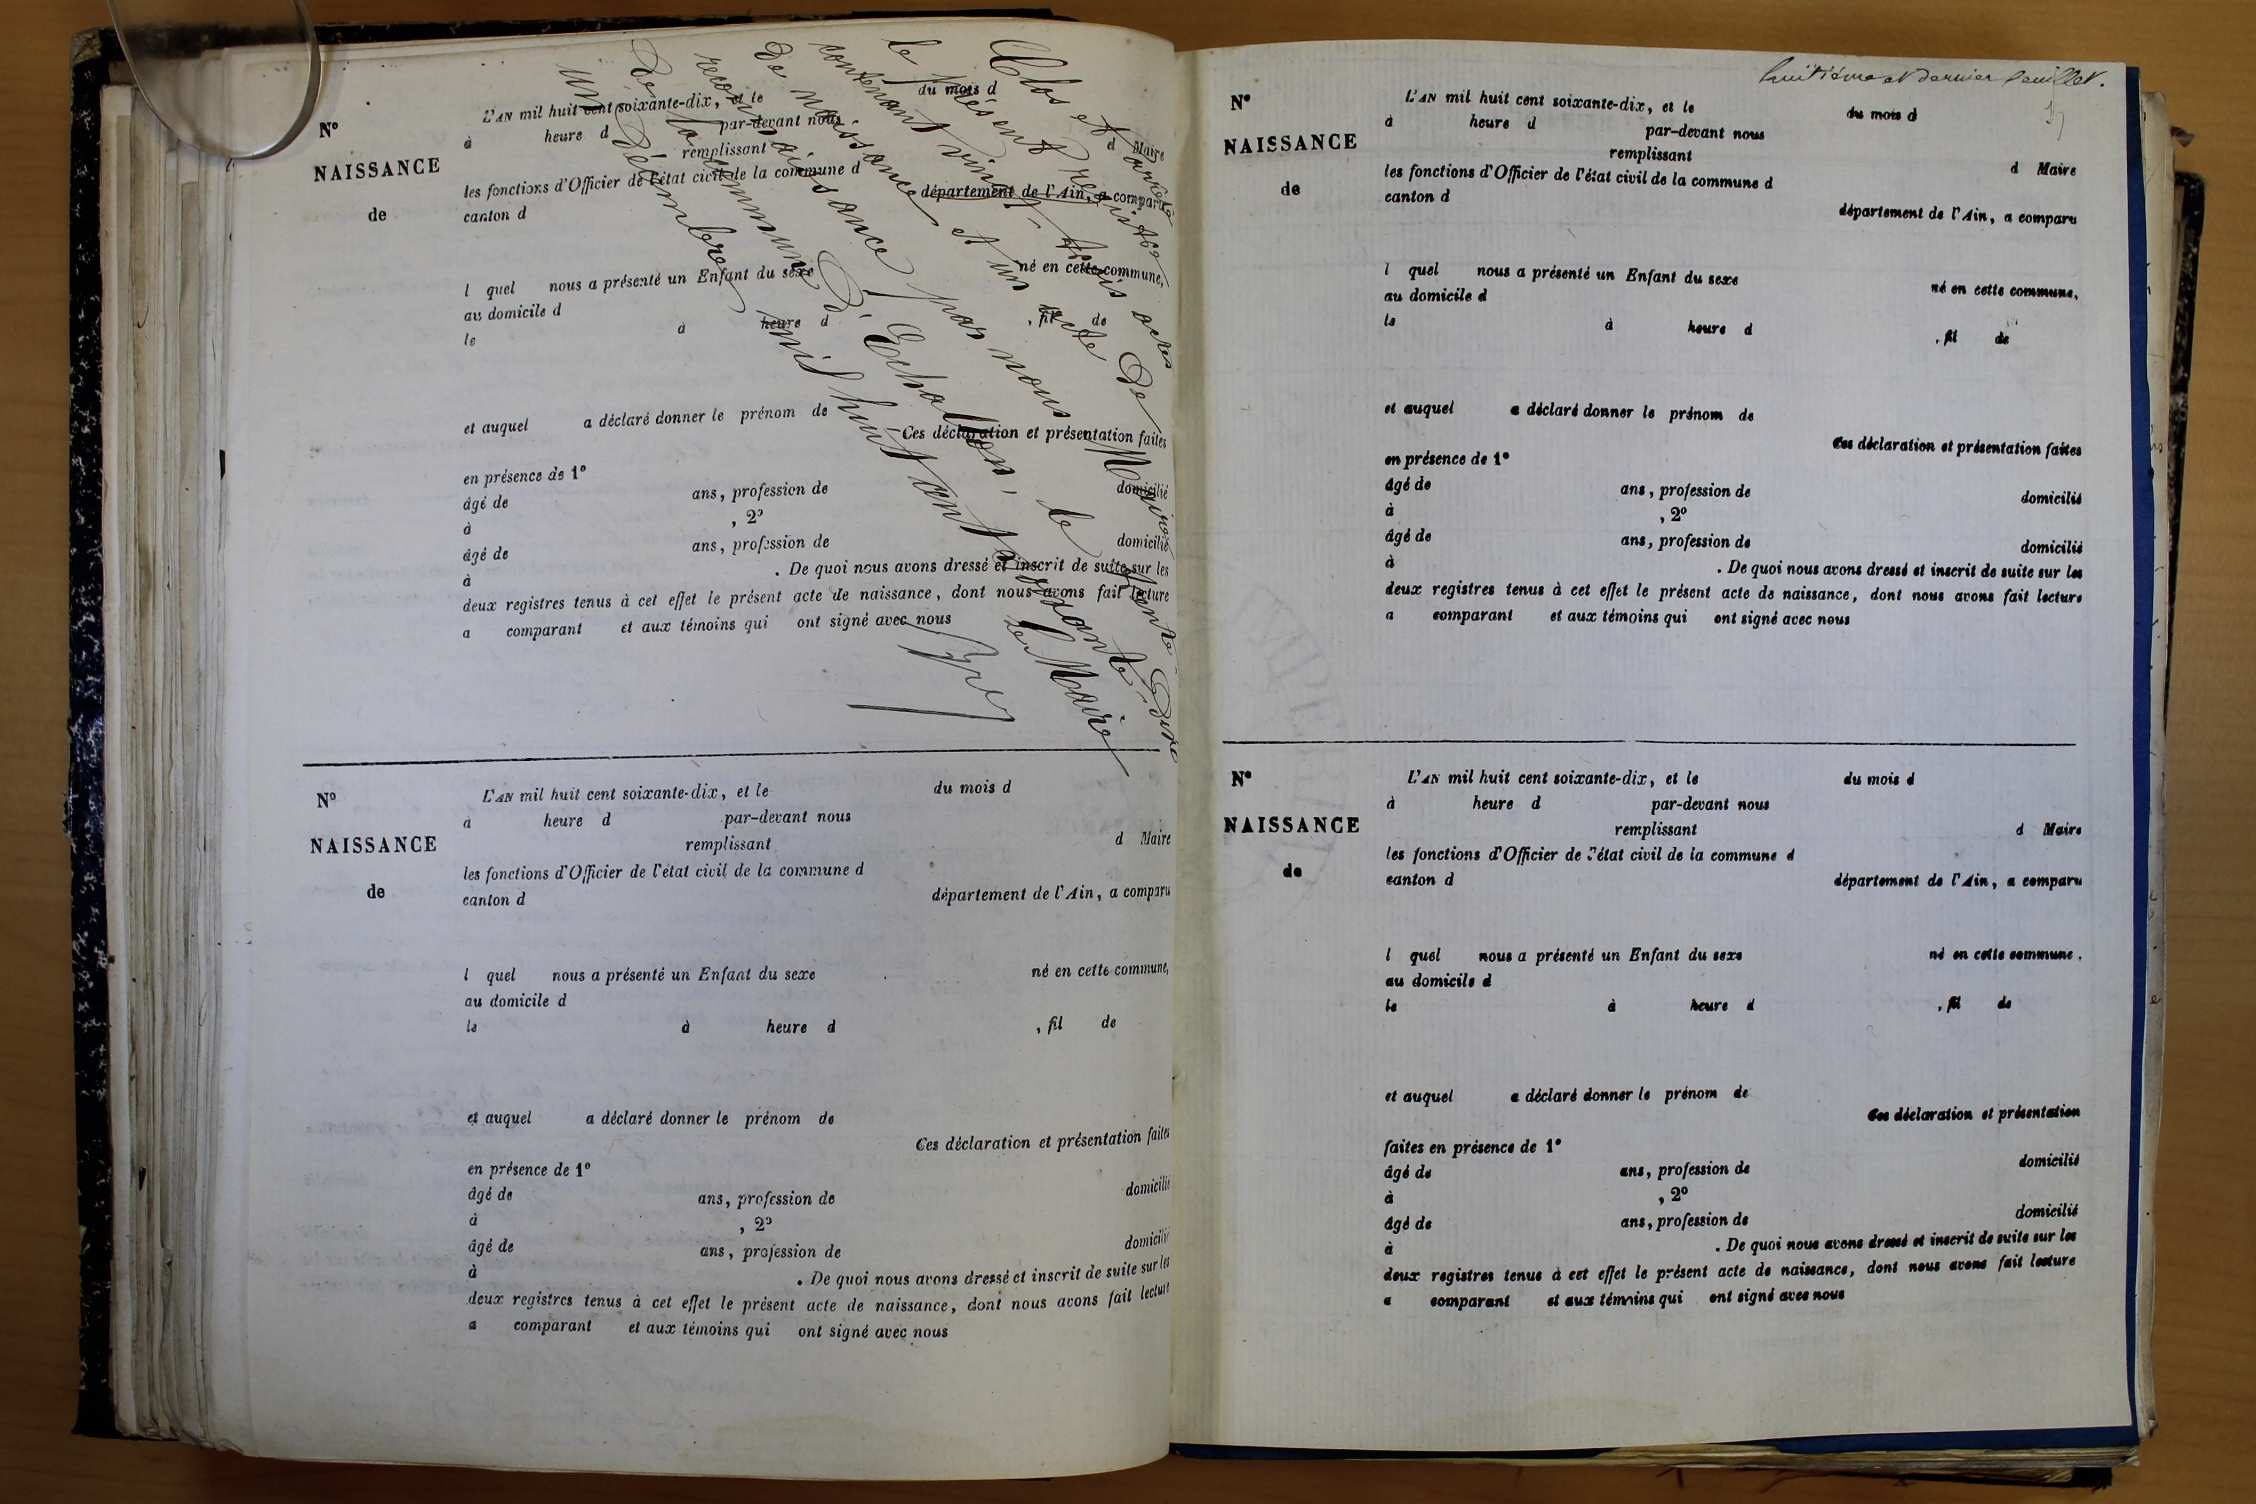 Clos et arrêté
le présent registre
contenant vingt-trois actes
de naissance et un acte de
reconnaissance par nous Maire
de la commune d'Echallon, le trente-
un Décembre mil huit cent soixante-dix
Le Maire
N°
NAISSANCE
de
L'AN mil huit cent soixante-dix, et le du mois d
à heure d par-devant nous
remplissant d Maire
les fonctions d'Officier de l'état civil de la commune d
canton d département de l'Ain, a comparu
l quel nous a présenté un Enfant du sexe né en cette commune,
au domicile d
le à heure d , fil de
et auquel a déclaré donner le prénom de
Ces déclaration et présentation faites
en présence de 1°
âgé de ans, profession de domicilié
à , 2°
âgé de ans, profession de domicilié
à . De quoi nous avons dressé et inscrit de suite sur les
deux registres tenus à cet effet le présent acte de naissance, dont nous avons fait lecture
a comparant et aux témoins qui ont signé avec nous
N°
NAISSANCE
de
L'AN mil huit cent soixante-dix, et le du mois d
à heure d par-devant nous
remplissant d Maire
les fonctions d'Officier de l'état civil de la commune d
canton d département de l'Ain, a comparu
l quel nous a présenté un Enfant du sexe né en cette commune,
au domicile d
le à heure d , fil de
et auquel a déclaré donner le prénom de
Ces déclaration et présentation faites
en présence de 1°
âgé de ans, profession de domicilié
à , 2°
âgé de ans, profession de domicilié
à . De quoi nous avons dressé et inscrit de suite sur les
deux registres tenus à cet effet le présent acte de naissance, dont nous avons fait lecture
a comparant et aux témoins qui ont signé avec nous
huitième et dernier feuillet.
N°
NAISSANCE
de
L'AN mil huit cent soixante-dix, et le du mois d
à heure d par-devant nous
remplissant d Maire
les fonctions d'Officier de l'état civil de la commune d
canton d département de l'Ain, a comparu
l quel nous a présenté un Enfant du sexe né en cette commune,
au domicile d
le à heure d , fil de
et auquel a déclaré donner le prénom de
Ces déclaration et présentation faites
en présence de 1°
âgé de ans, profession de domicilié
à , 2°
âgé de ans, profession de domicilié
à . De quoi nous avons dressé et inscrit de suite sur les
deux registres tenus à cet effet le présent acte de naissance, dont nous avons fait lecture
a comparant et aux témoins qui ont signé avec nous
N°
NAISSANCE
de
L'AN mil huit cent soixante-dix, et le du mois d
à heure d par-devant nous
remplissant d Maire
les fonctions d'Officier de l'état civil de la commune d
canton d département de l'Ain, a comparu
l quel nous a présenté un Enfant du sexe né en cette commune,
au domicile d
le à heure d , fil de
et auquel a déclaré donner le prénom de
Ces déclaration et présentation
faites en présence de 1°
âgé de ans, profession de domicilié
à , 2°
âgé de ans, profession de domicilié
à . De quoi nous avons dressé et inscrit de suite sur les
deux registres tenus à cet effet le présent acte de naissance, dont nous avons fait lecture
a comparant et aux témoins qui ont signé avec nous